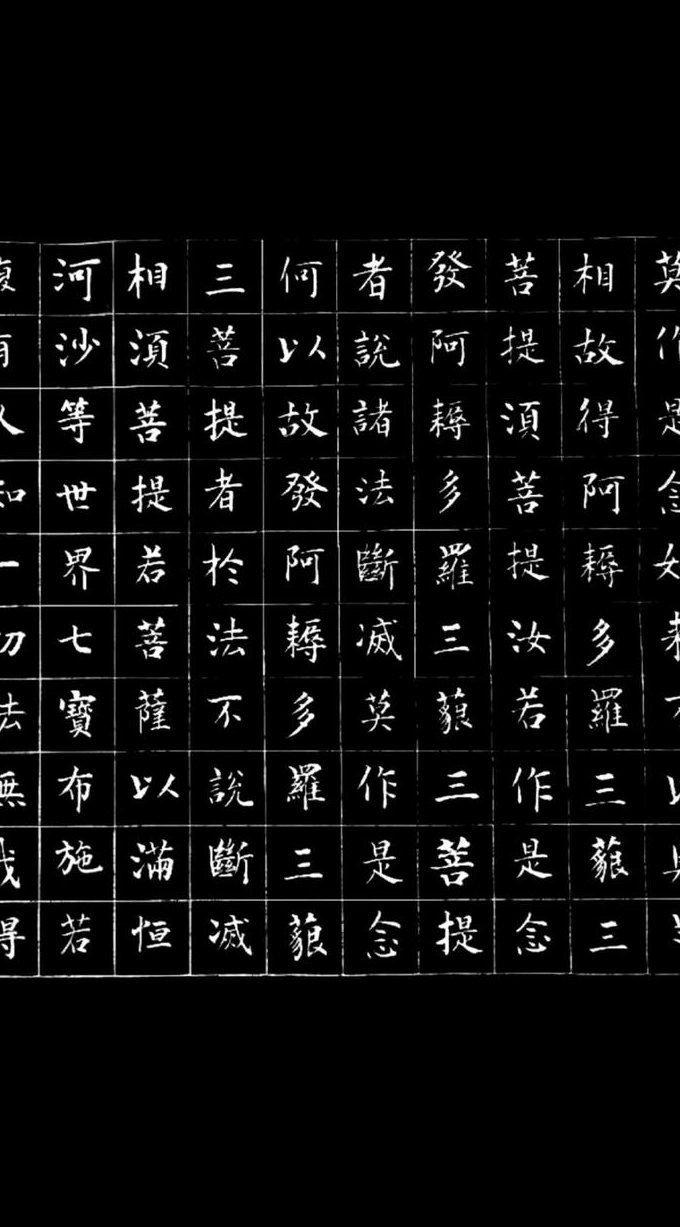 莫作是念如來不以具足
相故得阿耨多羅三藐三
菩提須菩提汝若作是念
發阿耨多羅三藐三菩提
者說諸法斷滅莫作是念
何以故發阿耨多羅三藐
三菩提者於法不說斷滅
相須菩提若菩薩以滿恒
河沙等世界七寶布施若
復有人知一切法無我得